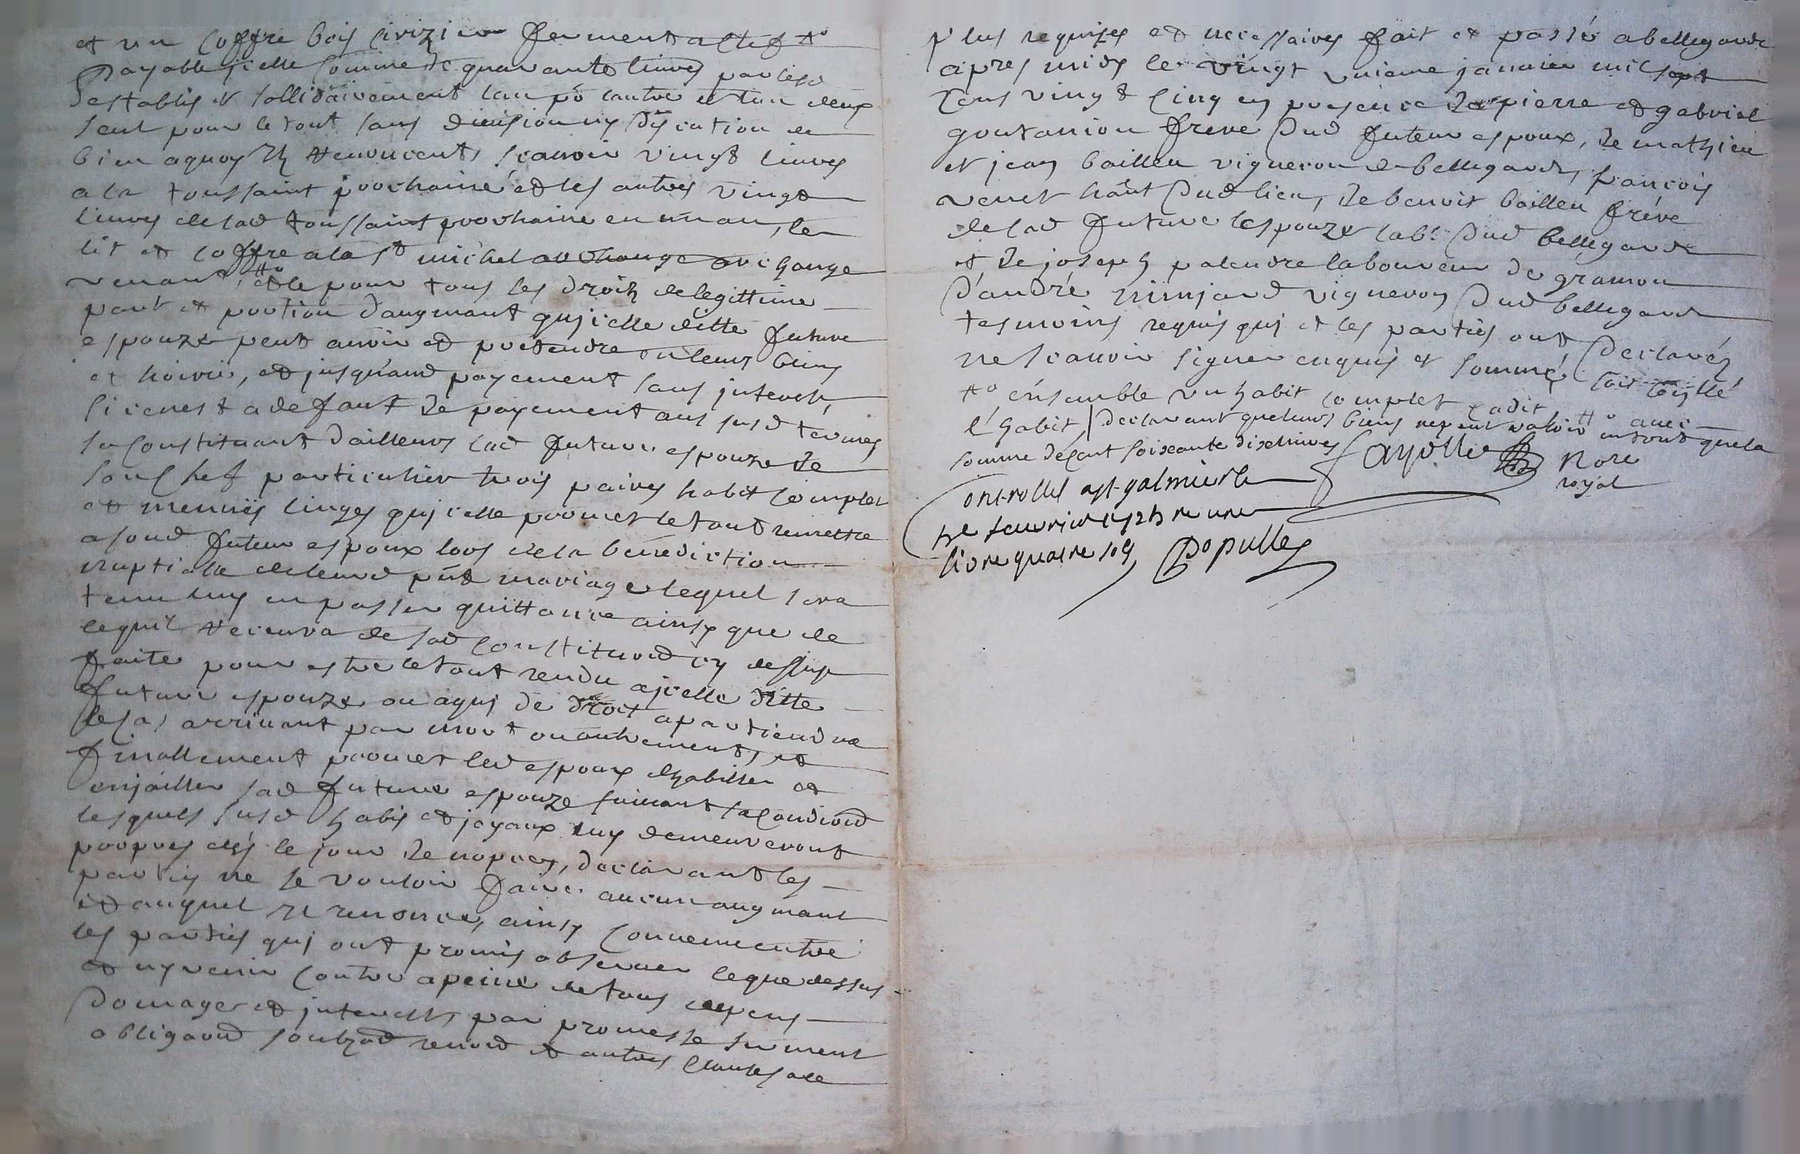 et un coffre bois cirizier fermant a clef #°
payable icelle somme de quarante livres par lesd
establis et sollidairement lun po lautre et lun deux
seul pour le tout sans division ny discution de
bien aquoy ilz renoncent, scavoir vingt livres
a la toussaint prochaine et les autres vingt
livres de lad toussaint prochaine en un an, le
lit et coffre a la st michel
venant, et le pour tous les droitz de legittime
part et portion daugmant qu jcelle ditte future
espouze peut avoir et pretendre en leurs biens
et hoirie, et jusquaud payement sans jnterestz
si cenest a defaut de payement aus susd termes
se constituant dailleurs lad future espouze de
son chef particulier trois paires habit complet
et menues linges qu jcelle promet le tout remettre
a sond futeur espoux lors de la benediction
nuptialle de leurd pnt mariage lequel sera
tenu luy en passer quittance ainsy que de
cequil recevra de sad constituon cy dessus
faitte pour estre le tout rendu a jcelle ditte
future espouze ou a quj de droit apartiendra
le cas arrivant par mort ou autrement, et
finallement promet led espoux dhabiller et
enjailler sad future espouze suivant sa condiond
lesquels susd habis et joyaux luy demeureront
propres des le jour de nopces, declarant les
parties ne se vouloir faire aucun augmant
et auquel ilz renonce, ainsy convenu entre
les parties quj ont promis observer ceque dessus
et ny venir contre a peine de tous depens
domages et jnterestz, par promesse serment
obligaond soubzod renond et autres clauses a ce
plus requizes et necessaires fait et passé a bellegarde
apres midy le vingt unieme janvier mil sept
cens vingt cinq en presence de pierre et gabriel
goutanion frere dud futeur espoux, de mathieu
et jean bailleu vigneron de bellegarde, francois
venet hant dud lieu, de benoit bailleu frere
de lad future espouze lab.r dud bellegarde
et de joseph palendre laboureur de gramon
dandré nimjard vigneron dud bellegarde
tesmoins requis quj et les parties ont declarés
ne scavoir signer enquis et sommé,
#° ensemble un habit complet cadit
lhabit / declarant que leurs biens ne peut valoir en tout que la
somme de cent soixante dix livres fayolle Nore
royal
Controllé a st galmier le
fevrier 1725 re une
livre quatre sols Populle